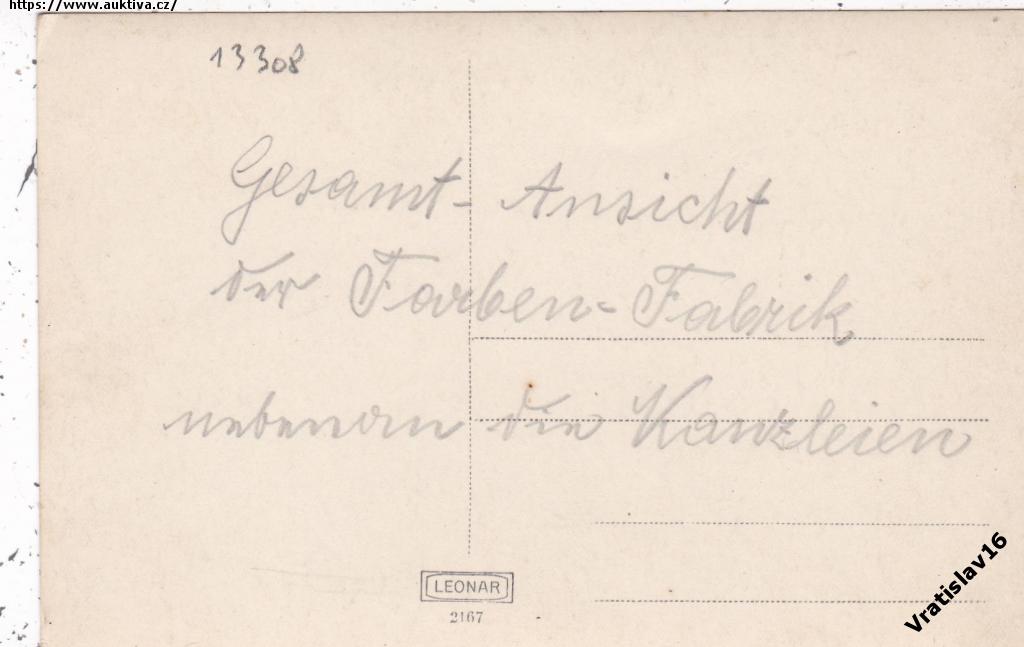 https://www.auktiva.cz/
13308
Gesamt-Ansicht
der Farben-Fabrik
nebenan die Kanzleien
LEONAR
2167
Vratislav16